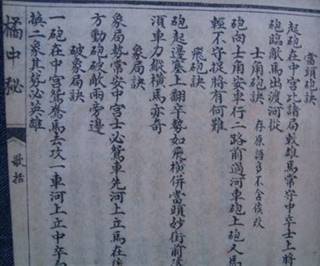 當頭砲訣
起砲在中宮比諸局較雄馬常守中卒士上將
砲臨敵馬出渡河從
士角砲訣 存原譜多不合後改
砲向士角安車行二路前過河車砲上砲又馬
輕不守後將有何難
飛砲訣
砲起邊塞上翻卒勢如飛橫併當頭妙衝前
須車力縱橫馬亦奇
象局訣
象局勢常安中宮士必鴛車先河上立馬在後
方動砲破敵兩旁邊
破象局訣
一砲在中宮鴛鴦馬去攻一車河上立中卒向
其勢必英雄
橘中秘
歌括